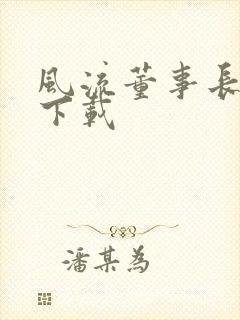 風流董事長
下載
潘某為